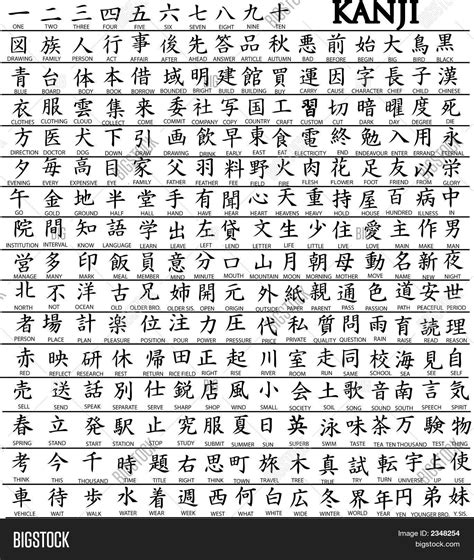 一 二 三 四 五 六 七 八 九 十 KANJI
ONE TWO THREE FOUR FIVE SIX SEVEN EIGHT NINE TEN
図 族 人 行 事 後 先 答 品 秋 悪 前 始 大 鳥 黒
DRAWING FAMILY PERSON ACT AFFAIR AFTER AHEAD ANSWER ARTICLE AUTUMN BAD BEFORE BEGIN BIG BIRD BLACK
青 台 体 本 借 域 明 建 館 買 運 因 字 長 子 漢
BLUE BOARD BODY BOOK BORROW BOUNDED BRIGHT BUILD BUILDING BUY CARRY CAUSE CHARACTER CHIEF CHILD CHINESE
衣 服 雲 集 来 委 社 写 国 工 習 切 暗 曜 度 死
CLOTHES CLOTHING CLOUD COLLECT COME COMMIT COMPANY COPY COUNTRY CRAFT CUSTOM CUT DARK DAY DEGREE DIE
方 医 犬 下 引 画 飲 早 東 食 電 終 勉 入 用 永
DIRECTION DOCTOR DOG DOWN DRAW DRAWING DRINK EARLY EAST EAT ELECTRICITY END ENDEAVOUR ENTER ERRAND ETERNAL
夕 毎 高 目 家 父 羽 料 野 火 肉 花 足 友 以 栄
EVENING EVERY EXPENSIVE EYE FAMILY FATHER FEATHER FEE FIELD FIRE FLESH FLOWER FOOT FRIEND FROM GLORY
午 金 地 半 堂 手 有 聞 心 天 重 持 屋 百 病 中
GO GOLD GROUND HALF HALL HAND HAVE HEAR HEART HEAVEN HEAVY HOLD HOUSE HUNDRED ILLNESS IN
院 間 知 語 学 出 左 文 生 少 住 愛 主 作 男
INSTITUTION INTERVAL KNOW LANGUAGE LEARN LEAVE LEFT LEND LETTER LIFE LITTLE LIVE LOVE MAIN MAKE MAN
営 多 印 員 意 分 口 山 月 朝 母 動 名 新 夜
MANAGE MANY MARK MEAL MEMBER MIND MINUTE MOUTH MOUNTAIN MOON MORNING MOTHER MOVE NAME NEW NIGHT
北 不 洋 古 兄 姉 開 元 外 親 通 色 道 安 世
NORTH NOT OCEAN OLD OLDER BRO. OLDER SIS. OPEN ORIGIN OUTSIDE PARENT PASS PASSION PATH PEACEFUL PERIOD
者 場 計 楽 位 注 力 圧 代 私 質 問 雨 育 読 理
PERSON PLACE PLAN PLEASURE POSITION POUR POWER PRESSURE PRICE PRIVATE QUALITY QUESTION RAIN RAISE READ REASON
赤 映 研 休 帰 右 正 起 川 室 走 同 校 海 見 自
RED REFLECT RESEARCH REST RETURN RIGHT RIGHT RISE RIVER ROOM RUN SAME SCHOOL SEA SEE SELF
売 送 話 別 仕 鋭 店 風 小 会 土 歌 音 南 言 気
SELL SEND SPEAK SEPARATE SERVE SHARP SHOP SMALL SOCIETY SOIL SONG SOUND SOUTH SPEECH SPIRIT
春 立 発 駅 止 究 服 夏 日 英 泳 味 茶 万 験 物
SPRING STAND START STATION STOP STUDY SUBMIT SUMMER SUN SUPERB SWIM TASTE TEA TEN THOUSAND TEST THING
考 今 千 時 題 右 思 町 旅 木 真 試
THINK THIS THOUSAND TIME TITLE RIGHT THINK TOWN TRAVEL TREE TRUE TRY TWO USE
車 待 歩 水 着 週 何 西 白 広 冬 世 界 年 円 弟 妹
VEHICLE WAIT WALK WATER WEAR WEEK WHAT WEST WHITE WIDE WINTER WORLD YEAR YEN YOUNGER BRO. Y.SIS.
BIGSTOCK
BIGSTOCK
BIGSTOCK
BIGSTOCK Image ID: 2348254
bigstock.com